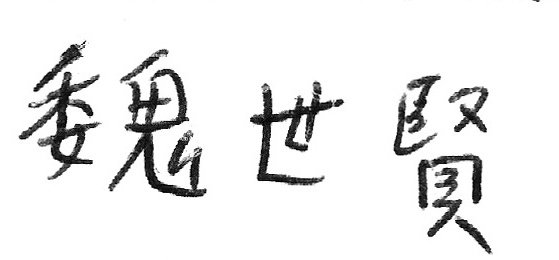 魏世賢